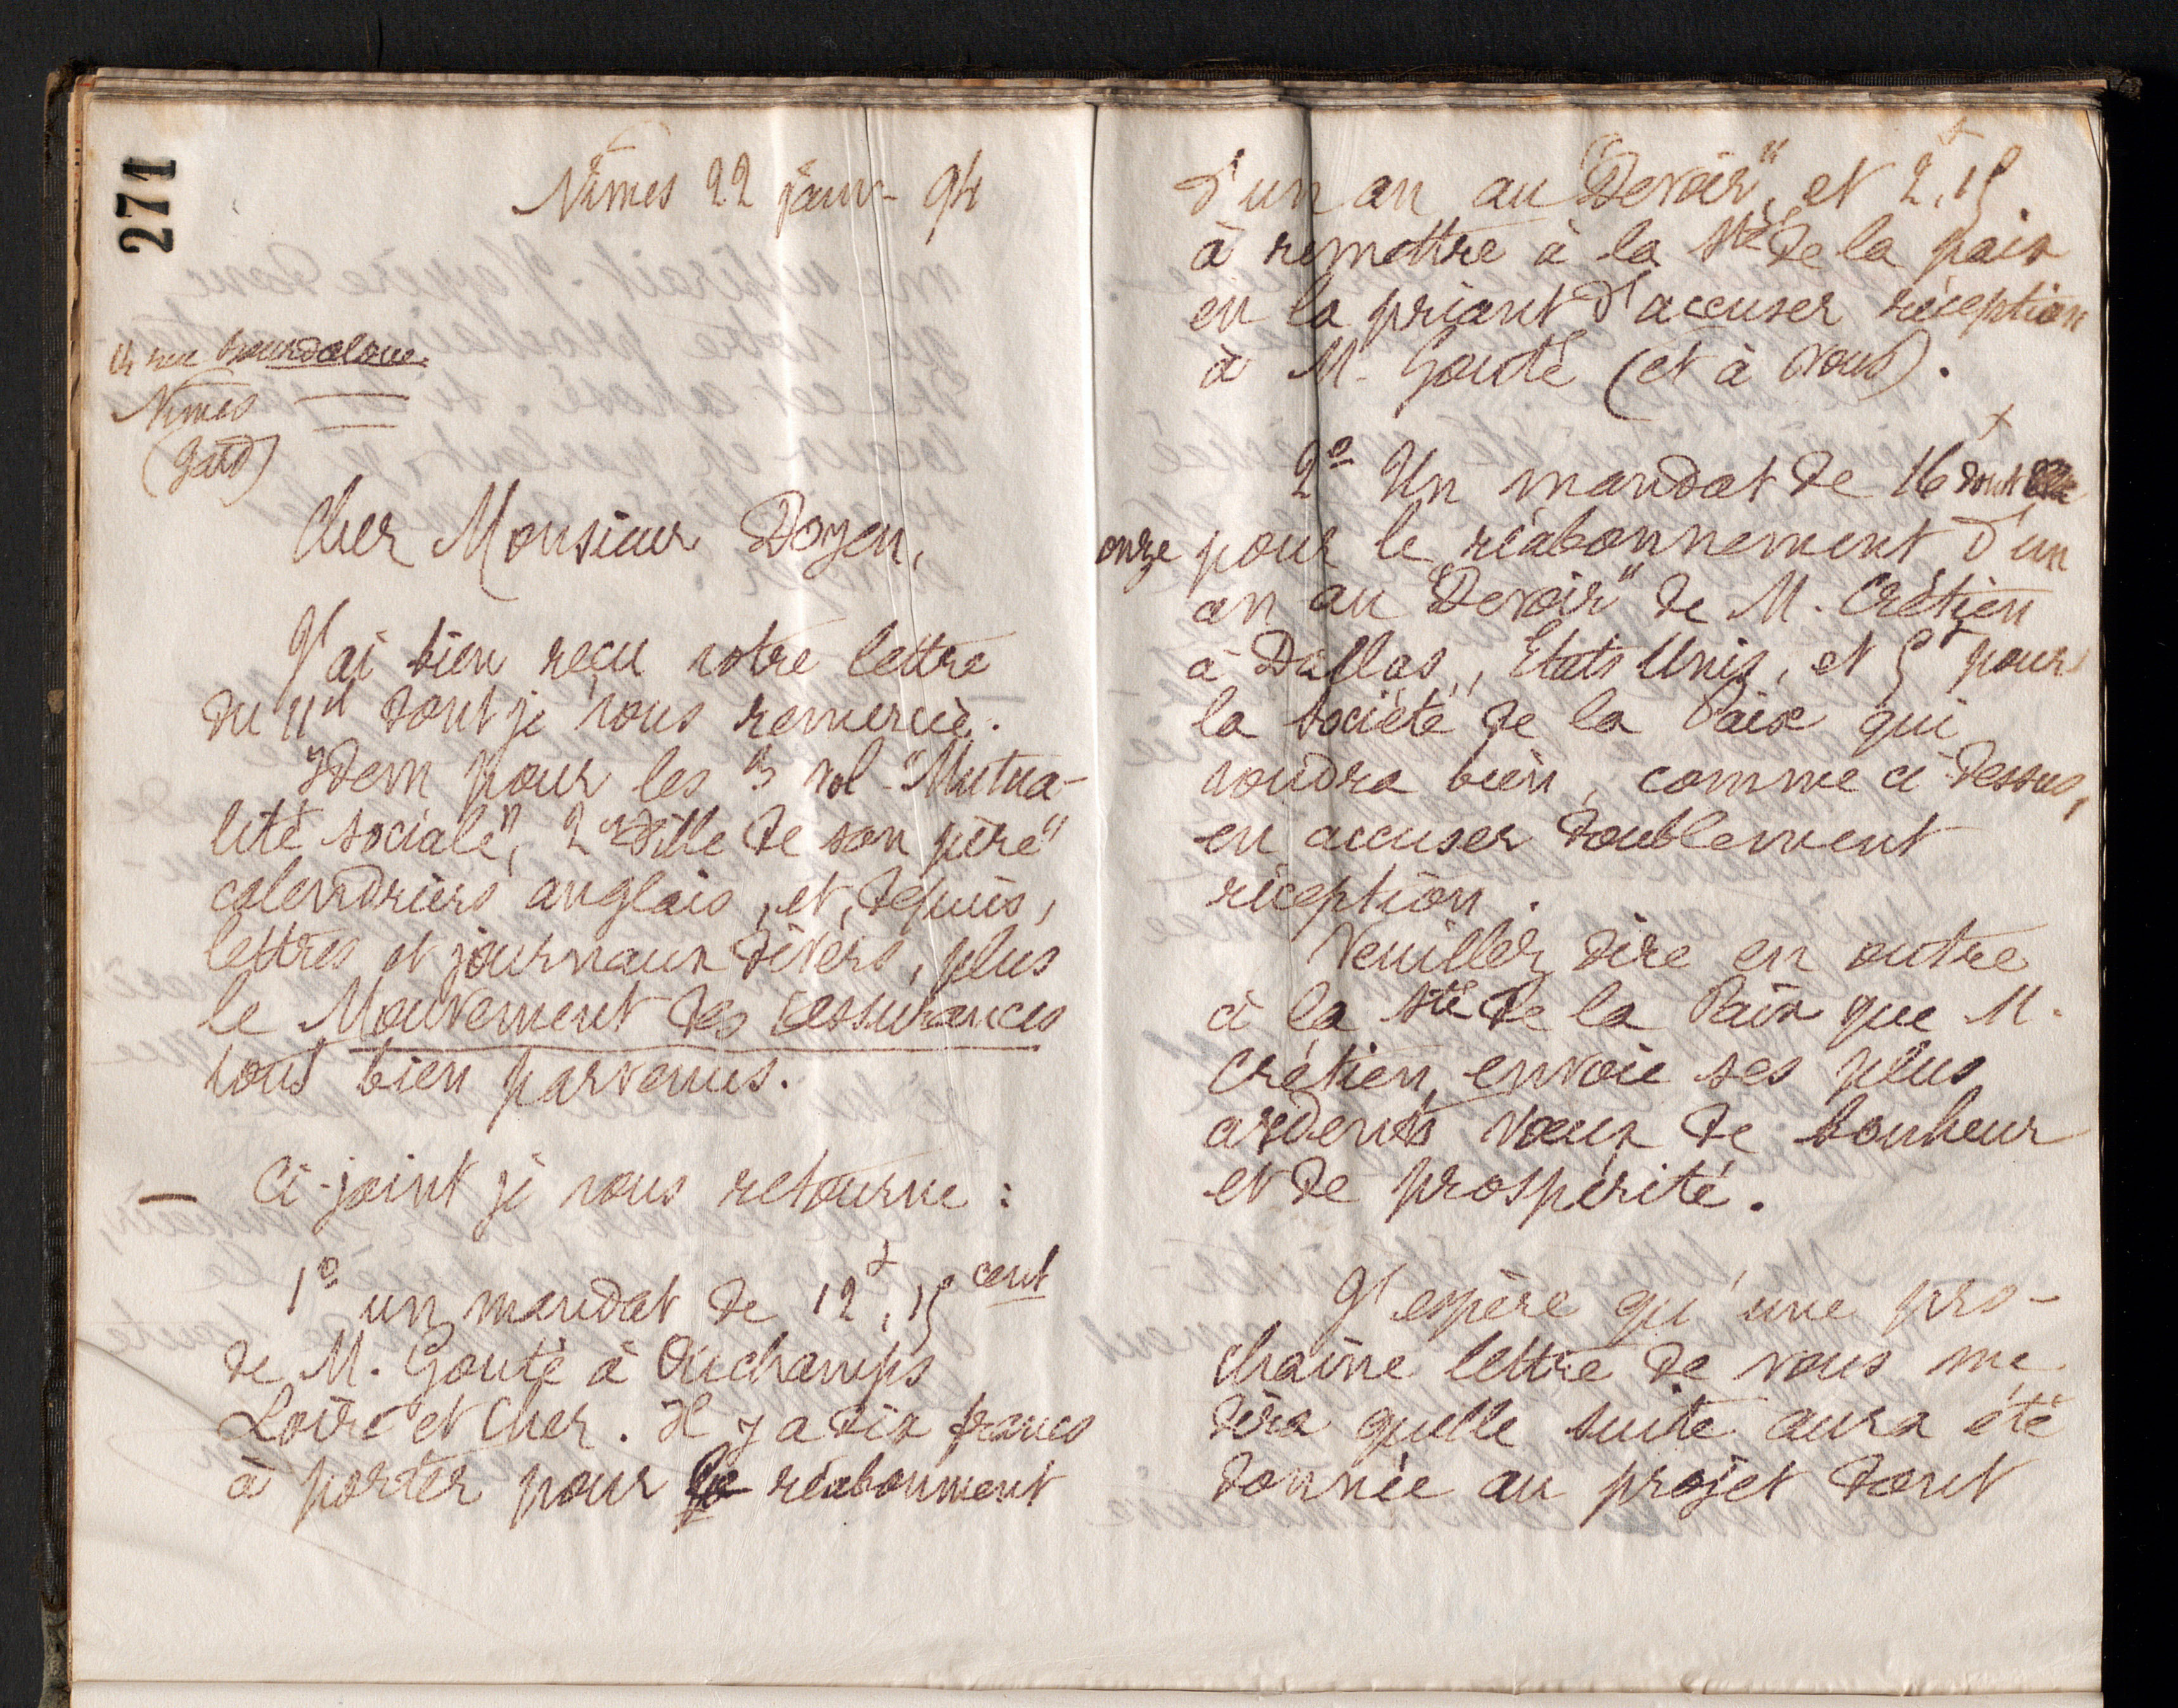 271
Nîmes 22 janv- 94
14 rue Bourdaloue
Nîmes
(Gard)
Cher Monsieur Doyen,
J'ai bien reçu votre lettre
du 11 ct dont je vous remercie.
Idem pour les 3 vol- "Mutua-
lité sociale", 2 "Fille de son père"
calendriers anglais, et, depuis,
lettres et journaux divers, plus
le Mouvement des assurances
tous bien parvenus.
— Ci-joint je vous retourne :
1º un mandat de 12f,15 cent
de M. Gouté à Ouchamps
Loire et Cher. Il y a dix francs
à porter pour le réabonment
d'un an au "Devoir", et 2f,15.
à remettre à la Sté de la paix
en la priant d'accuser réception
à M- Gouté (et à vous).
2º Un mandat de 16f dont
onze pour le réabonnement d'un
an au "Devoir" de M. Crétien
à Dallas, Etats Unis, et 5f pour
la Société de la Paix qui
voudra bien, comme ci-dessus,
en accuser doublement
réception.
Veuillez dire en outre
à la Sté de la Paix que M.
Crétien envoie ses plus
ardents vœux de bonheur
et de prospérité.
J'espère qu'une pro-
chaine lettre de vous me
dira quelle suite aura été
donnée au projet dont